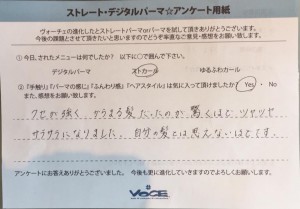 ストレート・デジタルパーマ☆アンケート用紙
ヴォーチェの進化したとストレートパーマorパーマを試して頂きありがとうございます。
今後の課題とさせて頂きたいと思いますのでどうぞ率直なご意見・感想をお願い致します。
① 今日、されたメニューは何でしたか? 以下に○で囲んで下さい。
デジタルパーマ ストカール ゆるふわカール
② 『手触り』『パーマの感じ』『ふんわり感』『ヘアスタイル』は気に入って頂けましたか? Yes ・ No
また、感想をお願い致します。
クセが強く、からまる髪だったのが驚くほど、ツヤツヤ
サラサラになりました。自分の髪とは思えないほどです。
アンケートにお答えありがとうございました。 今後も更に進化していきますのでよろしくお願いします。
VOCE